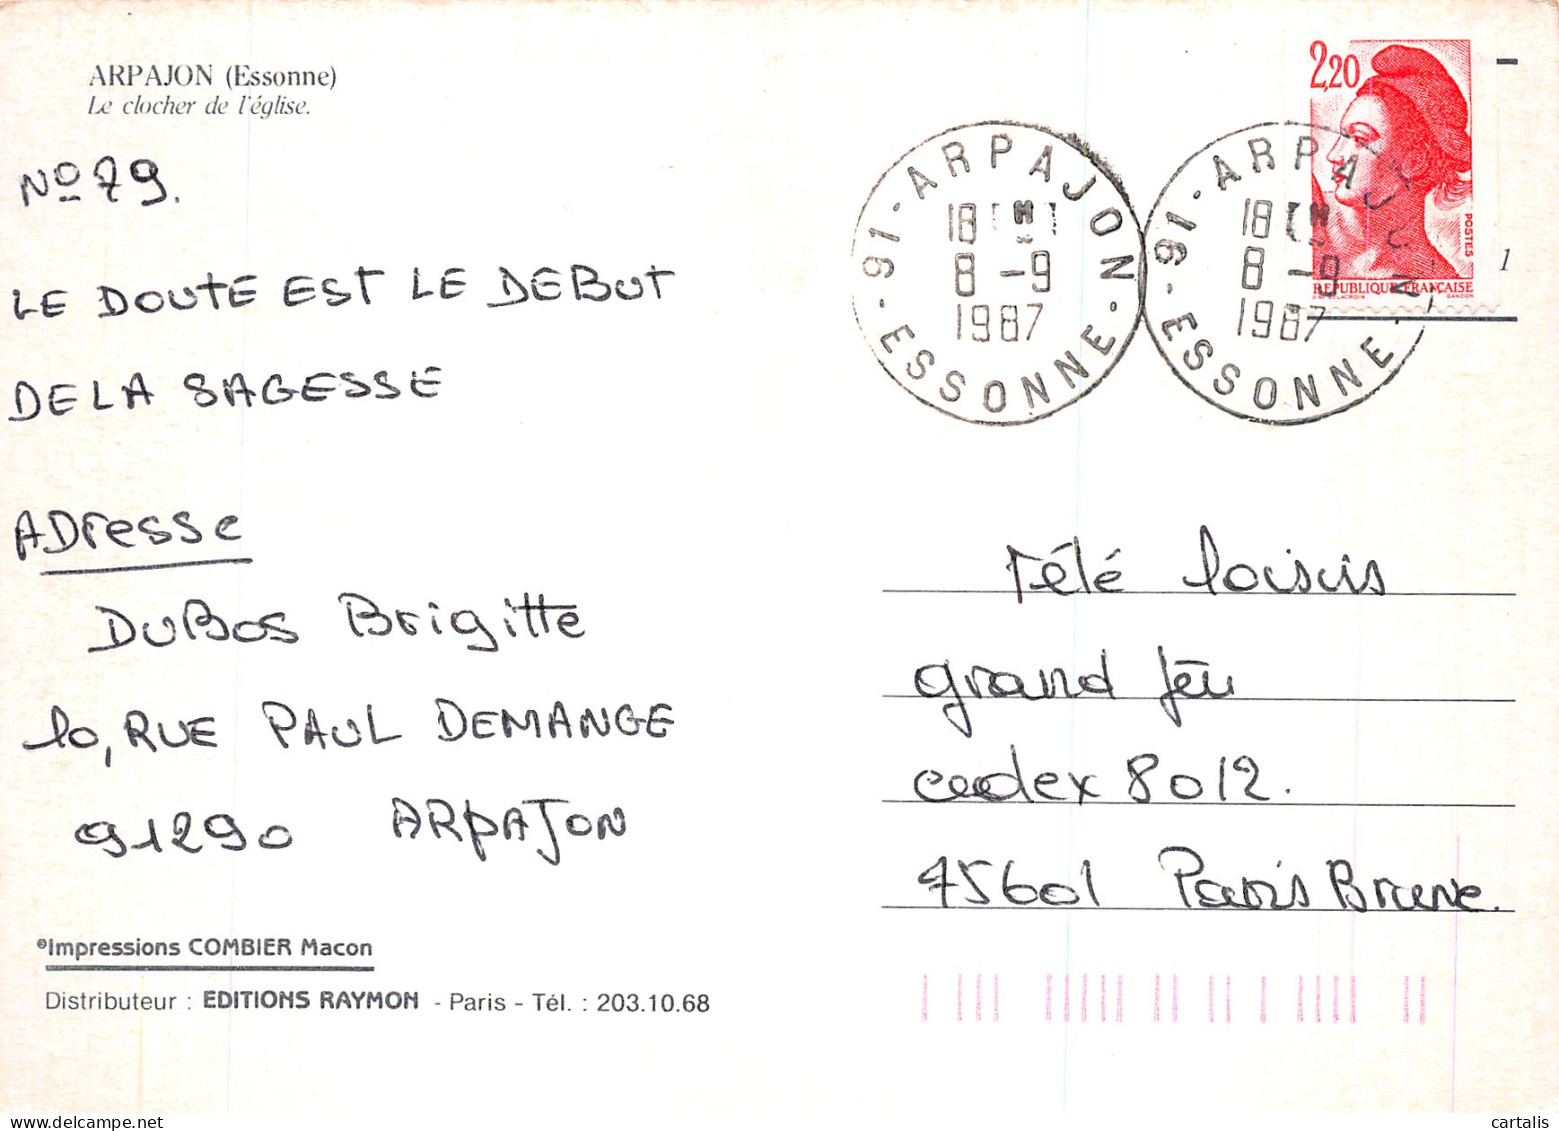 ARPAJON (Essonne)
Le clocher de l'église.
No 79.
LE DOUTE EST LE DEBUT
DE LA SAGESSE
ADresse
DuBos Brigitte
10, RUE PAUL DEMANGE
91290 ARPAJON
©Impressions COMBIER Macon
Distributeur : EDITIONS RAYMON - Paris - Tél. : 203.10.68
91 - ARPAJON - ESSONNE -
18 H
8 - 9
1987
91 - ARPAJON - ESSONNE -
18 H
8 - 9
1987
2,20
POSTES
REPUBLIQUE FRANÇAISE
D'AP. DELACROIX GANDON
1
Télé loisirs
grand Jeu
cedex 8012.
75601 Paris Brune.
cartalis